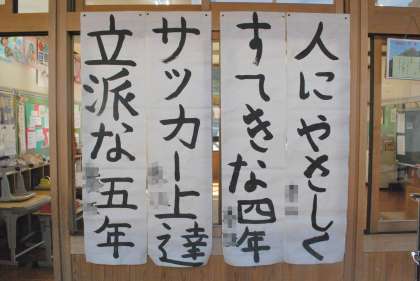 人にやさしく
すてきな四年
サッカー上達
立派な五年